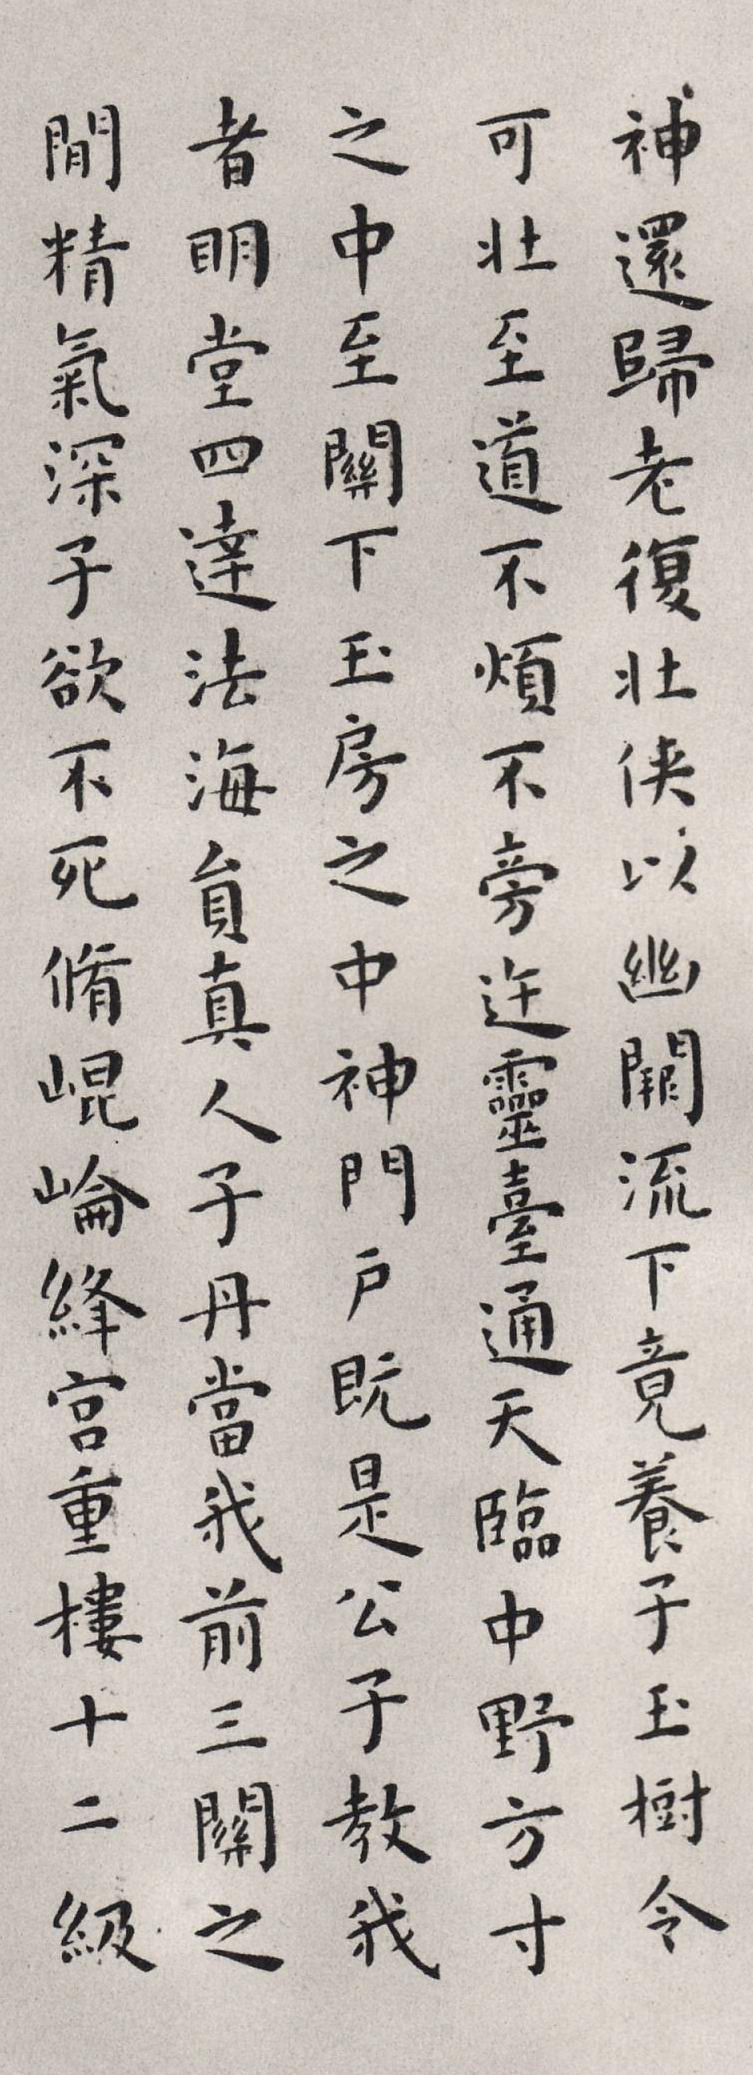 神還歸老復壯侠以幽闕流下竟養子玉樹令
可壯至道不煩不旁迕靈臺通天臨中野方寸
之中至關下玉房之中神門户既是公子教我
者明堂四達法海貟真人子丹當我前三關之
間精氣深子欲不死脩崐崘絳宫重樓十二級